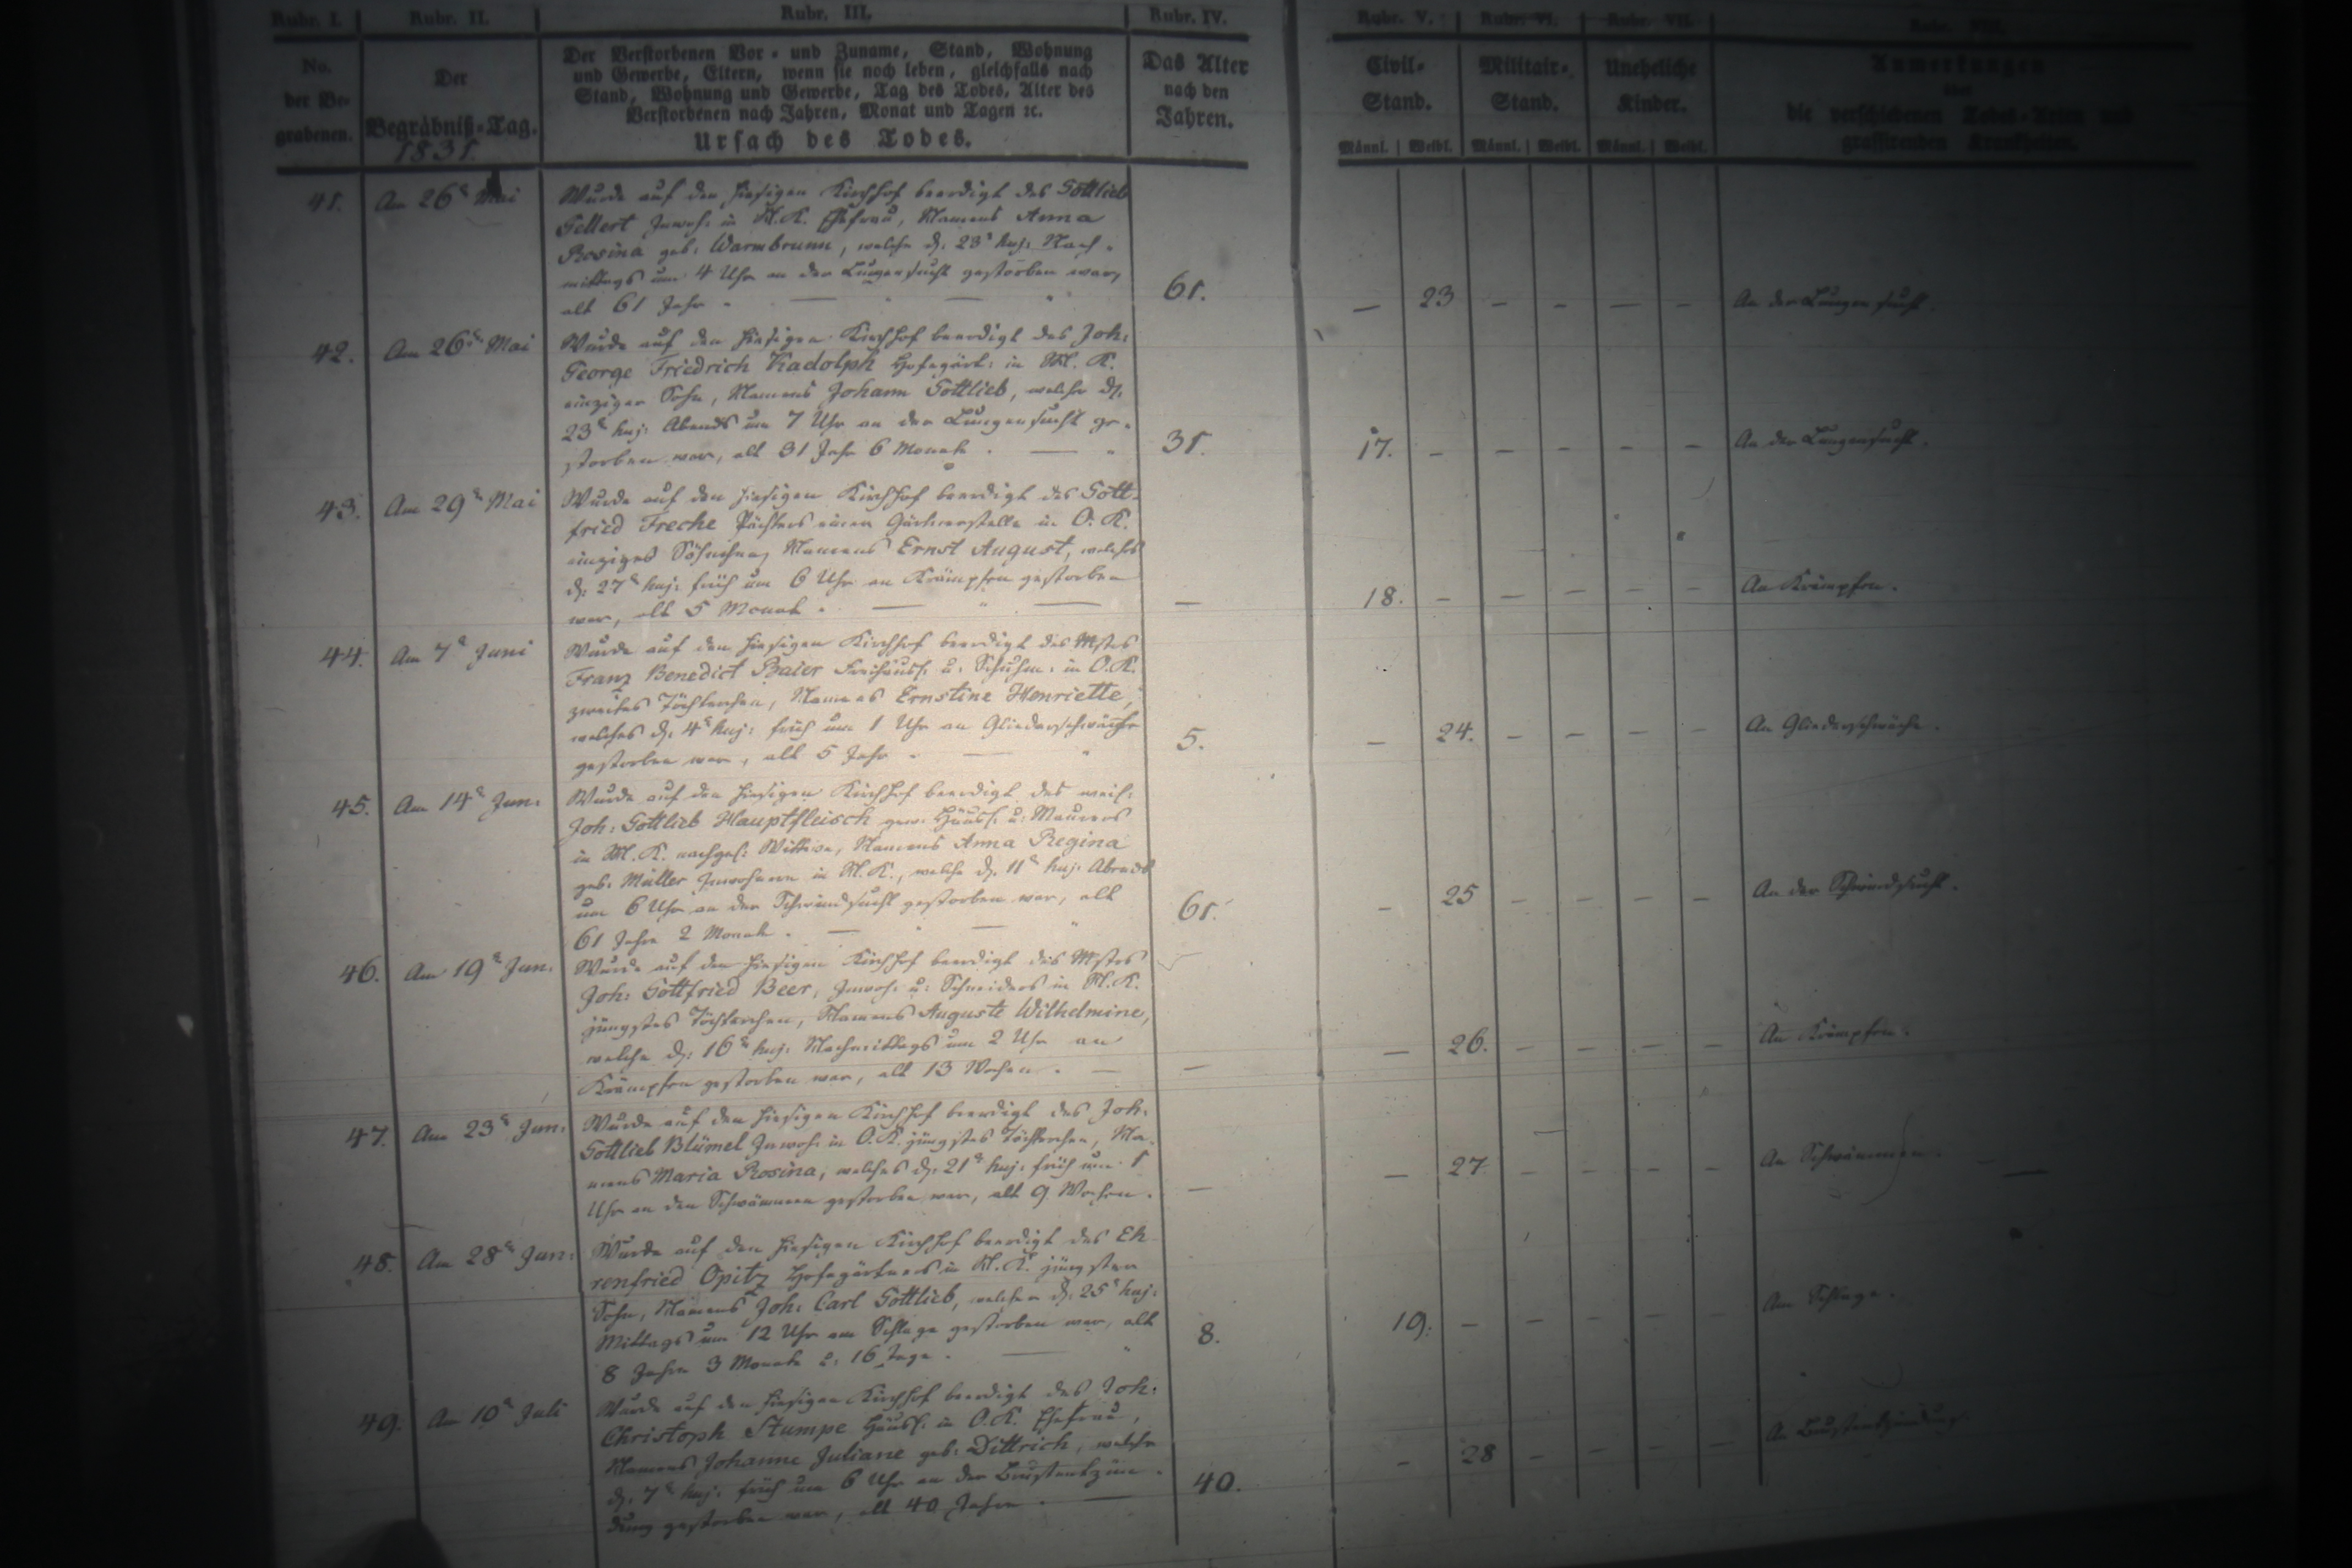 Rubr. I. Rubr. II. Rubr. III. Rubr. IV. Rubr. V. Rubr. VI. Rubr. VII. Rubr. VIII.
No.
der Be-
grabenen.
Der
Begräbniß-Tag.
1831.
Der Verstorbenen Vor- und Zuname, Stand, Wohnung
und Gewerbe, Eltern, wenn sie noch leben, gleichfalls nach
Stand, Wohnung und Gewerbe, Tag des Todes, Alter des
Verstorbenen nach Jahren, Monat und Tagen ꝛc.
Ursach des Todes.
Das Alter
nach den
Jahren.
Civil-
Stand.
Männl. Weibl.
Militair-
Stand.
Männl. Weibl.
Uneheliche
Kinder.
Männl. Weibl.
Anmerkungen
über
die verschiedenen Todes-Arten und
grassirenden Krankheiten.
41. Am 26t Mai
Wurde auf den hiesigen Kirchhof beerdigt des Gottlieb
Gellert Inwoh: in N. K. Ehefrau, Namens Anna
Rosina geb: Warmbrunn, welche d. 23t huj: Nach-
mittags um 4 Uhr an der Lungensucht gestorben war,
alt 61 Jahr.
61. — 23 — — — — An der Lungensucht.
42. Am 26t Mai
Wurde auf den hiesigen Kirchhof beerdigt des Joh:
George Friedrich Kadolph Hofegärt: in N. K.
einziger Sohn, Namens Johann Gottlieb, welcher d.
23t huj: Abends um 7 Uhr an der Lungensucht ge-
storben war, alt 31 Jahr 6 Monate.
31. 17. — — — — — An der Lungensucht.
43. Am 29t Mai
Wurde auf den hiesigen Kirchhof beerdigt des Gott-
fried Freche Pächters einer Gärtnerstelle in O. K.
einziges Söhnchen, Namens Ernst August, welches
d: 27t huj: früh um 6 Uhr an Krämpfen gestorben
war, alt 5 Monat.
— 18. — — — — — An Krämpfen.
44. Am 7t Juni
Wurde auf den hiesigen Kirchhof beerdigt des Mstrs
Franz Benedict Baier Freihäusl: u: Schuhm: in O. K.
zweites Töchterchen, Namens Ernstine Henriette,
welches d: 4t huj: früh um 1 Uhr an Gliederschwäche
gestorben war, alt 5 Jahr.
5. — 24. — — — — An Gliederschwäche.
45. Am 14t Jun:
Wurde auf den hiesigen Kirchhof beerdigt des weil:
Joh: Gottlieb Hauptfleisch gew: Häusl: u: Maurers
in N. K. nachgel: Wittwe, Namens Anna Regina
geb: Müller Inwohnerin in N. K., welche d. 11t huj: Abends
um 6 Uhr an der Schwindsucht gestorben war, alt
61 Jahre 2 Monate.
61. — 25 — — — — An der Schwindsucht.
46. Am 19t Jun:
Wurde auf den hiesigen Kirchhof beerdigt des Mstrs
Joh: Gottfried Beer, Inwoh: u: Schneiders in N. K.
jüngstes Töchterchen, Namens Auguste Wilhelmine,
welche d: 16t huj: Nachmittags um 2 Uhr an
Krämpfen gestorben war, alt 13 Wochen.
— — 26. — — — — An Krämpfen.
47. Am 23t Jun:
Wurde auf den hiesigen Kirchhof beerdigt des Joh:
Gottlieb Blümel Inwoh: in O. K. jüngstes Töchterchen, Na-
mens Maria Rosina, welches d: 21t huj: früh um 1
Uhr an den Schwämmen gestorben war, alt 9 Wochen.
— — 27 — — — — An Schwämmen.
48. Am 28t Jun:
Wurde auf den hiesigen Kirchhof beerdigt des Eh-
renfried Opitz Hofegärtners in N. K. jüngster
Sohn, Namens Joh: Carl Gottlieb, welcher d: 25t huj:
Mittags um 12 Uhr am Schlage gestorben war, alt
8 Jahre 3 Monate u: 16 Tage.
8. 19. — — — — — Am Schlage.
49. Am 10t Juli
Wurde auf den hiesigen Kirchhof beerdigt des Joh:
Christoph Stumpe Häusl: in O. K. Ehefrau,
Namens Johanne Juliane geb: Dittrich, welche
d. 7t huj: früh um 6 Uhr an der Brustentzün-
dung gestorben war, alt 40 Jahre.
40. — 28 — — — — An Brustentzündung.